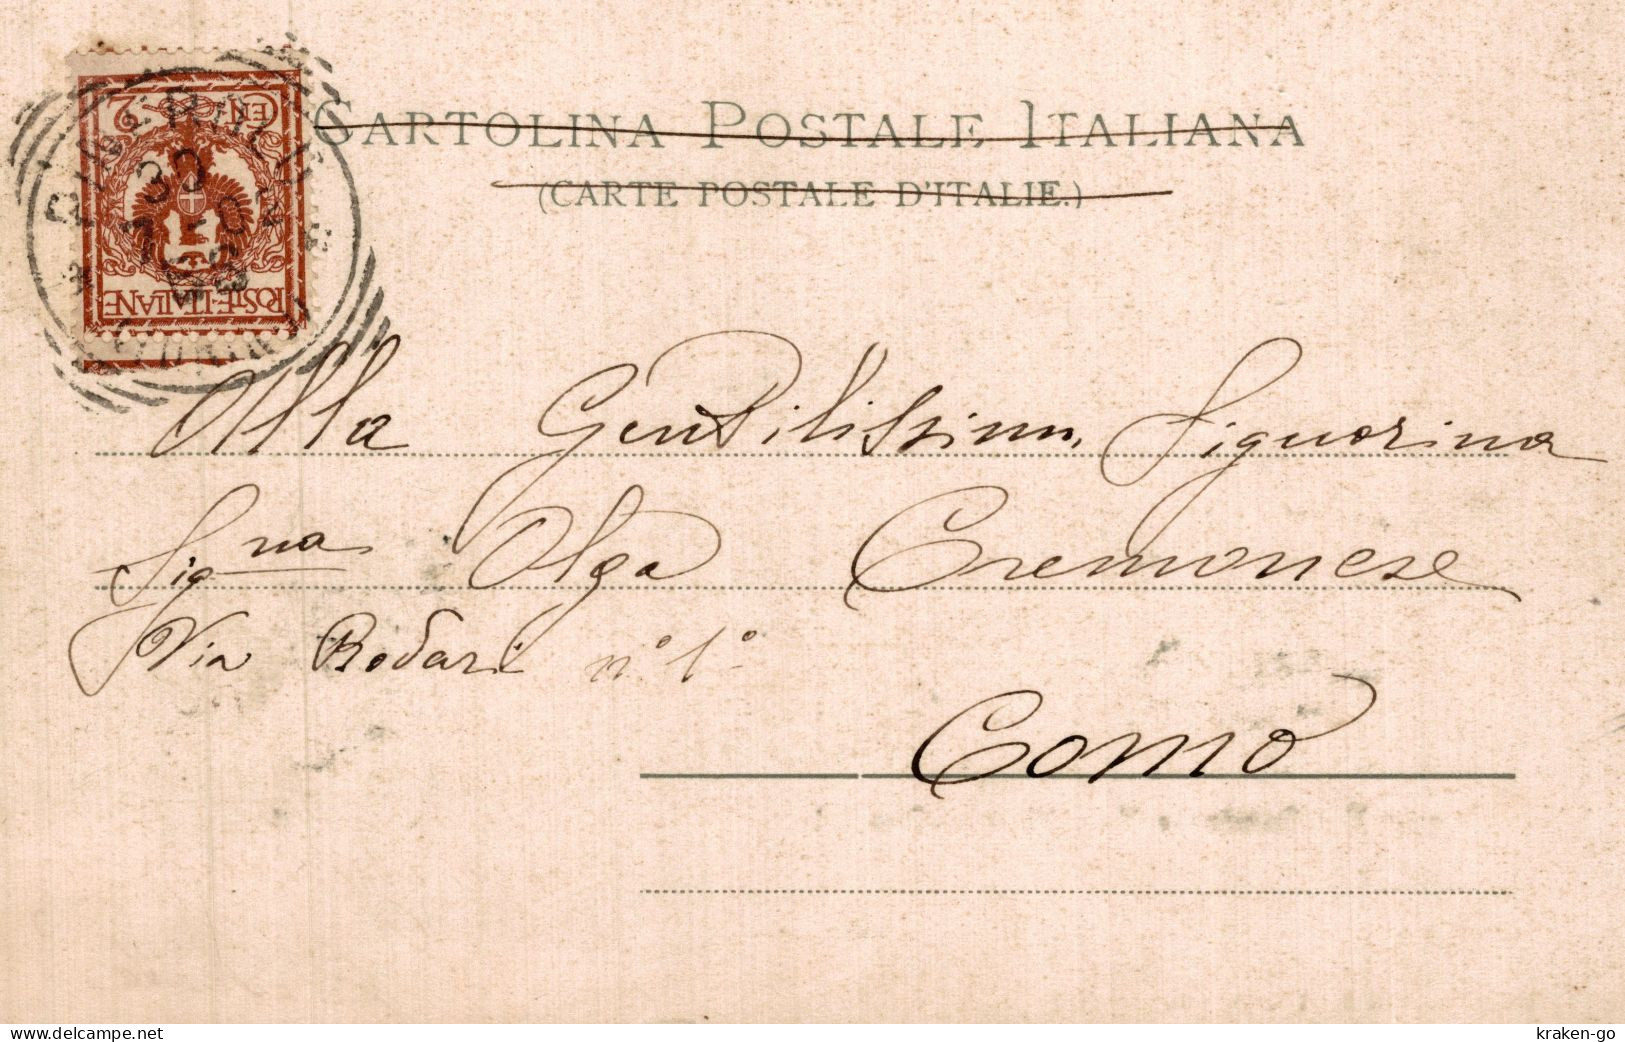 CARTOLINA POSTALE ITALIANA
(CARTE POSTALE D'ITALIE.)
CEN 2
POSTE-ITALIANE
30
Alla Gentilissim. Signorina
Sig.na Olga Cremonese
Via Rodari n° 1°
Como
delcampe.net
kraken-go